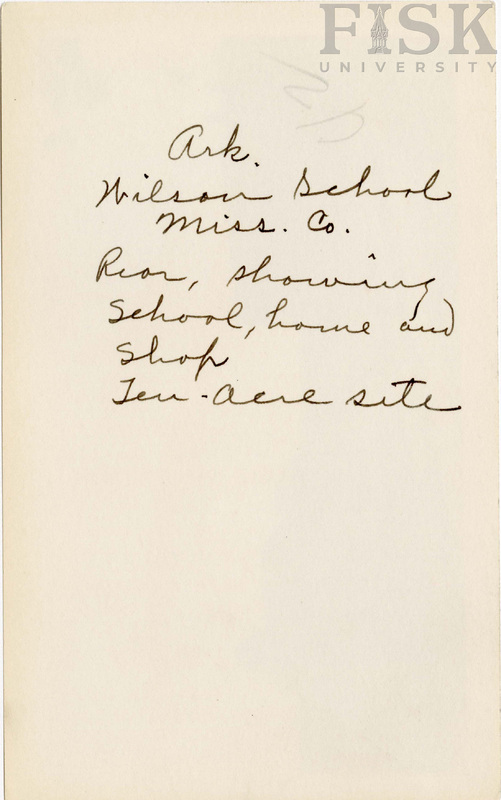 FISK
UNIVERSITY
Ark.
Wilson School
Miss. Co.
Rear, showing
School, home and
Shop
Ten-Acre site